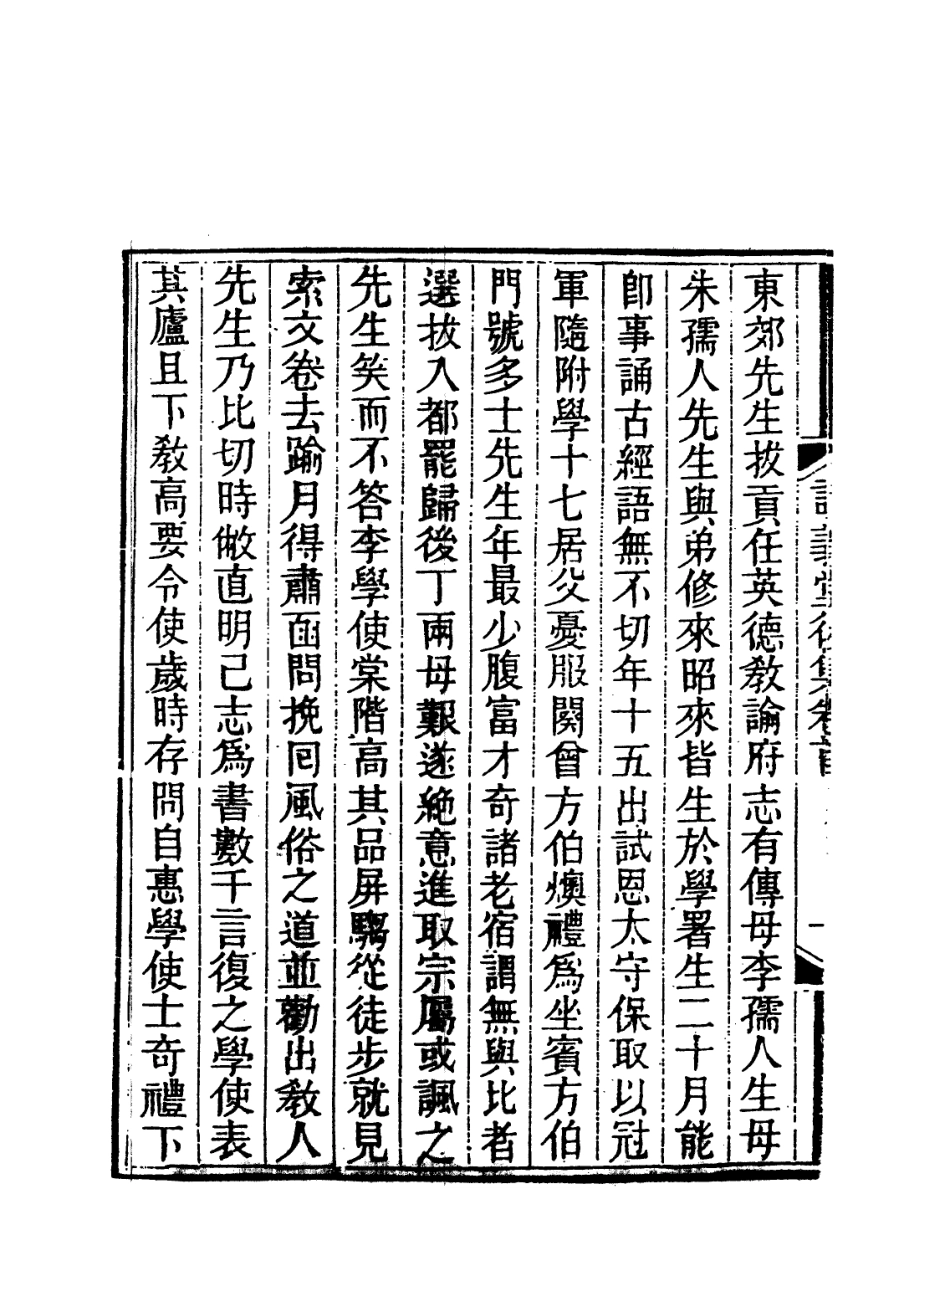 東郊先生拔貢任英德敎諭府志有傳母李孺人生母
朱孺人先生與弟修來昭來皆生於學署生二十月能
卽事誦古經語無不切年十五出試恩太守保取以冠
軍隨附學十七居父憂服闋曾方伯燠禮爲坐賓方伯
門號多士先生年最少腹富才奇諸老宿謂無與比者
選拔入都罷歸後丁兩母艱遂絶意進取宗屬或諷之
先生笑而不答李學使棠階高其品屏騶從徒步就見
索文卷去踰月得肅函問挽回風俗之道並勸出敎人
先生乃比切時敝直明己志爲書數千言復之學使表
其廬且下敎高要令使歲時存問自惠學使士奇禮下